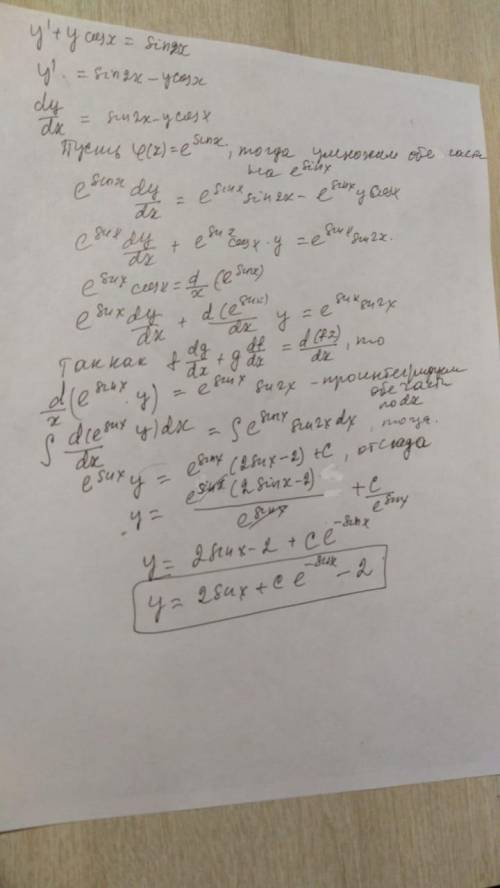 y' + y cosx = sin2x
y' = sin2x - ycosx
dy/dx = sin2x - ycosx
Пусть φ(x) = e^sinx, тогда умножим обе части
на e^sinx
e^sinx dy/dx = e^sinx sin2x - e^sinx y cosx
e^sinx dy/dx + e^sinx cosx · y = e^sinx sin2x.
e^sinx cosx = d/x (e^sinx)
e^sinx dy/dx + d(e^sinx)/dx y = e^sinx sin2x
Так как f dg/dx + g df/dx = d(fg)/dx, то
d/x (e^sinx · y) = e^sinx sin2x - проинтегрируем
обе части
по dx
∫ d(e^sinx y)/dx dx = ∫ e^sinx sin2x dx, тогда.
e^sinx y = e^sinx (2sinx - 2) + C, отсюда
y = e^sinx (2sinx - 2)/e^sinx + C/e^sinx
y = 2sinx - 2 + C e^-sinx
y = 2sinx + C e^-sinx - 2